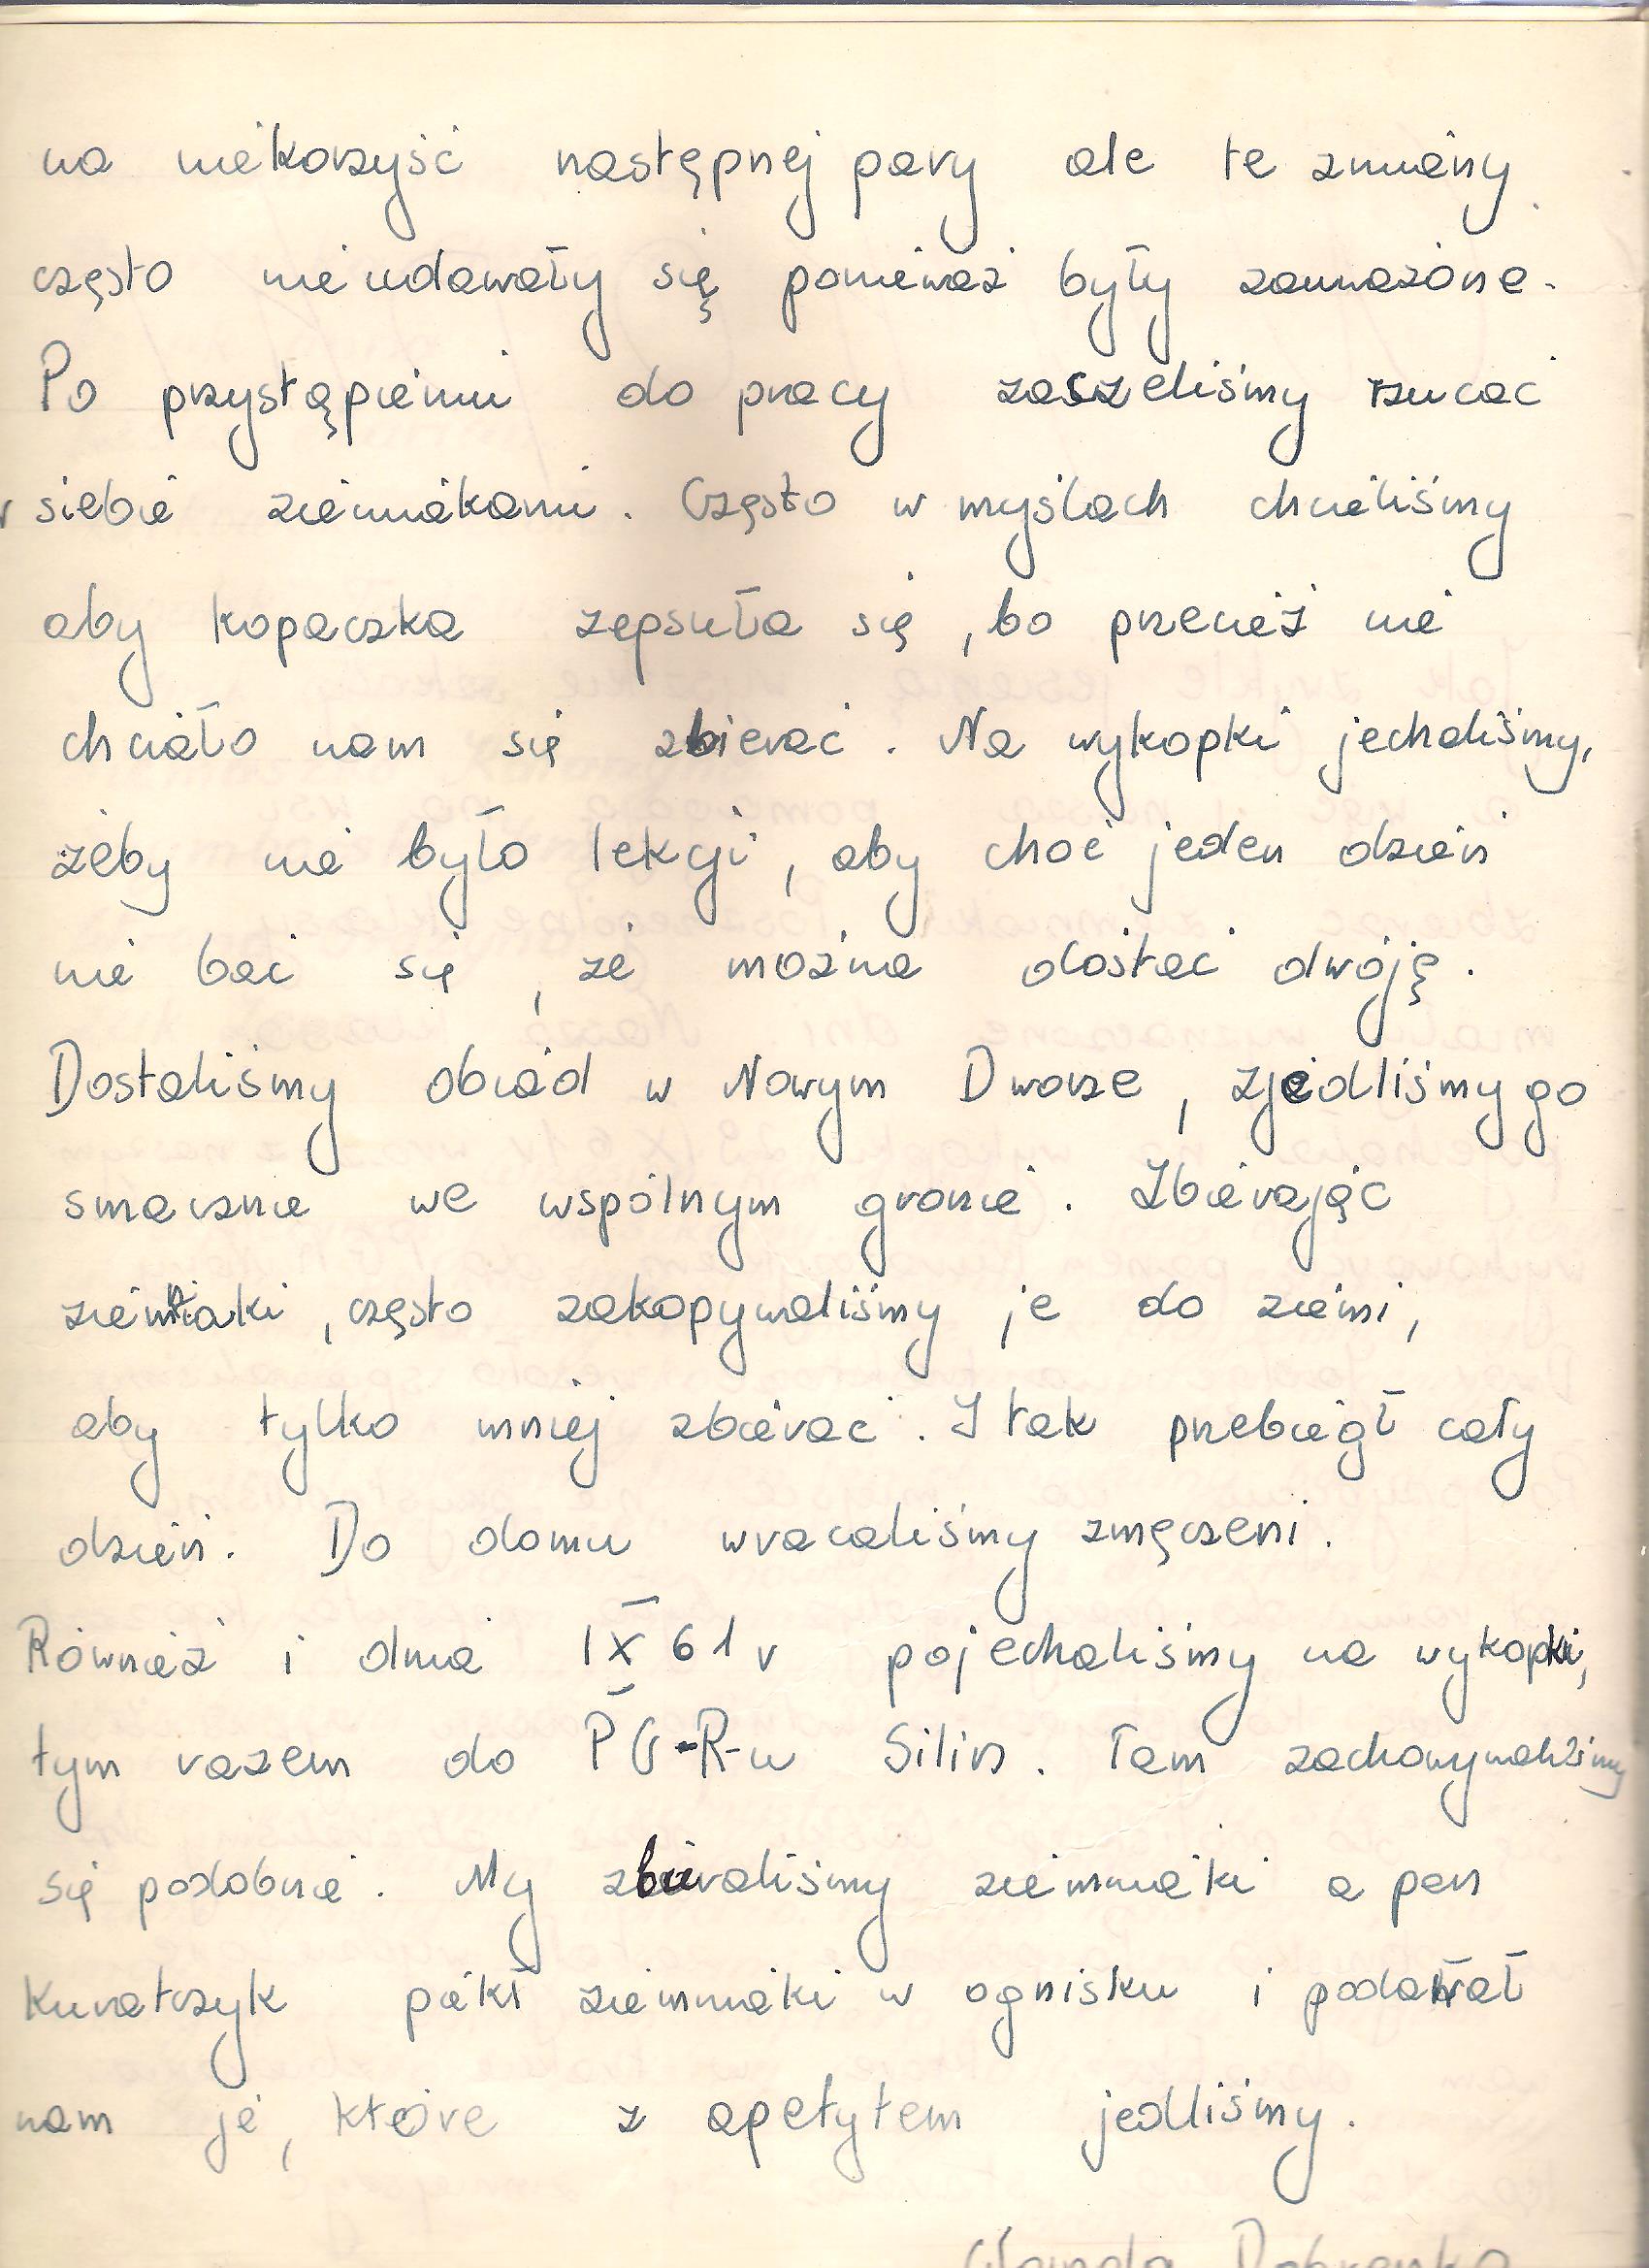 na niekorzyść następnej pary ale te zmiany
często nie udawały się ponieważ były zauważone.
Po przystąpieniu do pracy zaszeliśmy rzucać
w siebie ziemniakami. Często w myślach chcieliśmy
aby kopaczka zepsuła się, bo przecież nie
chciało nam się zbierać. Na wykopki jechaliśmy,
żeby nie było lekcji, aby choć jeden dzień
nie bać się, że można dostać dwóję.
Dostaliśmy obiad w Nowym Dworze, zjedliśmy go
smacznie we wspólnym gronie. Zbierając
ziemniaki, często zakopywaliśmy je do ziemi,
aby tylko mniej zbierać. I tak przebiegł cały
dzień. Do domu wracaliśmy zmęczeni.
Również i dnia IX 61 r pojechaliśmy na wykopki,
tym razem do PG-R-u Silin. Tam zachowywaliśmy
się podobnie. My zbieraliśmy ziemniaki a pan
Kuratczyk piekł ziemniaki w ognisku i podawał
nam je, które z apetytem jedliśmy.